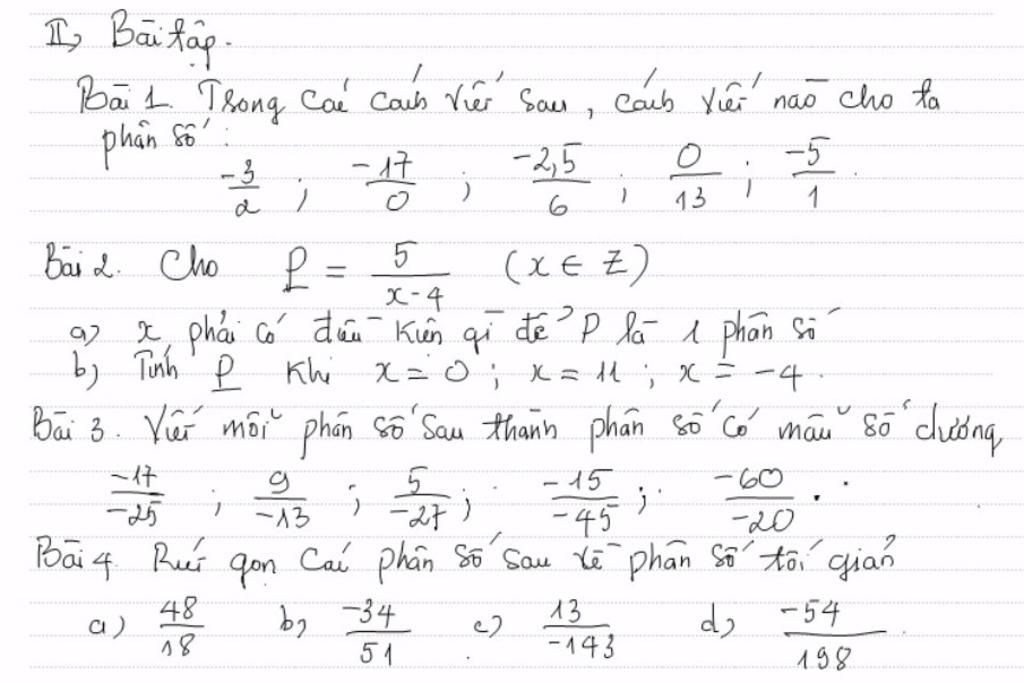 II, Bài tập.
Bài 1. Trong các cách viết sau, cách viết nào cho ta
phân số:
-3/2 ; -17/0 ; -2,5/6 ; 0/13 ; -5/1.
Bài 2. Cho P = 5/(x-4) (x ∈ Z)
a) x phải có điều kiện gì để P là 1 phân số
b) Tính P khi x = 0 ; x = 11 ; x = -4.
Bài 3. Viết mỗi phân số sau thành phân số có mẫu số dương
-17/-25 ; 9/-13 ; 5/-27 ; -15/-45 ; -60/-20.
Bài 4. Rút gọn các phân số sau về phân số tối giản
a) 48/18 b) -34/51 c) 13/-143 d) -54/198.